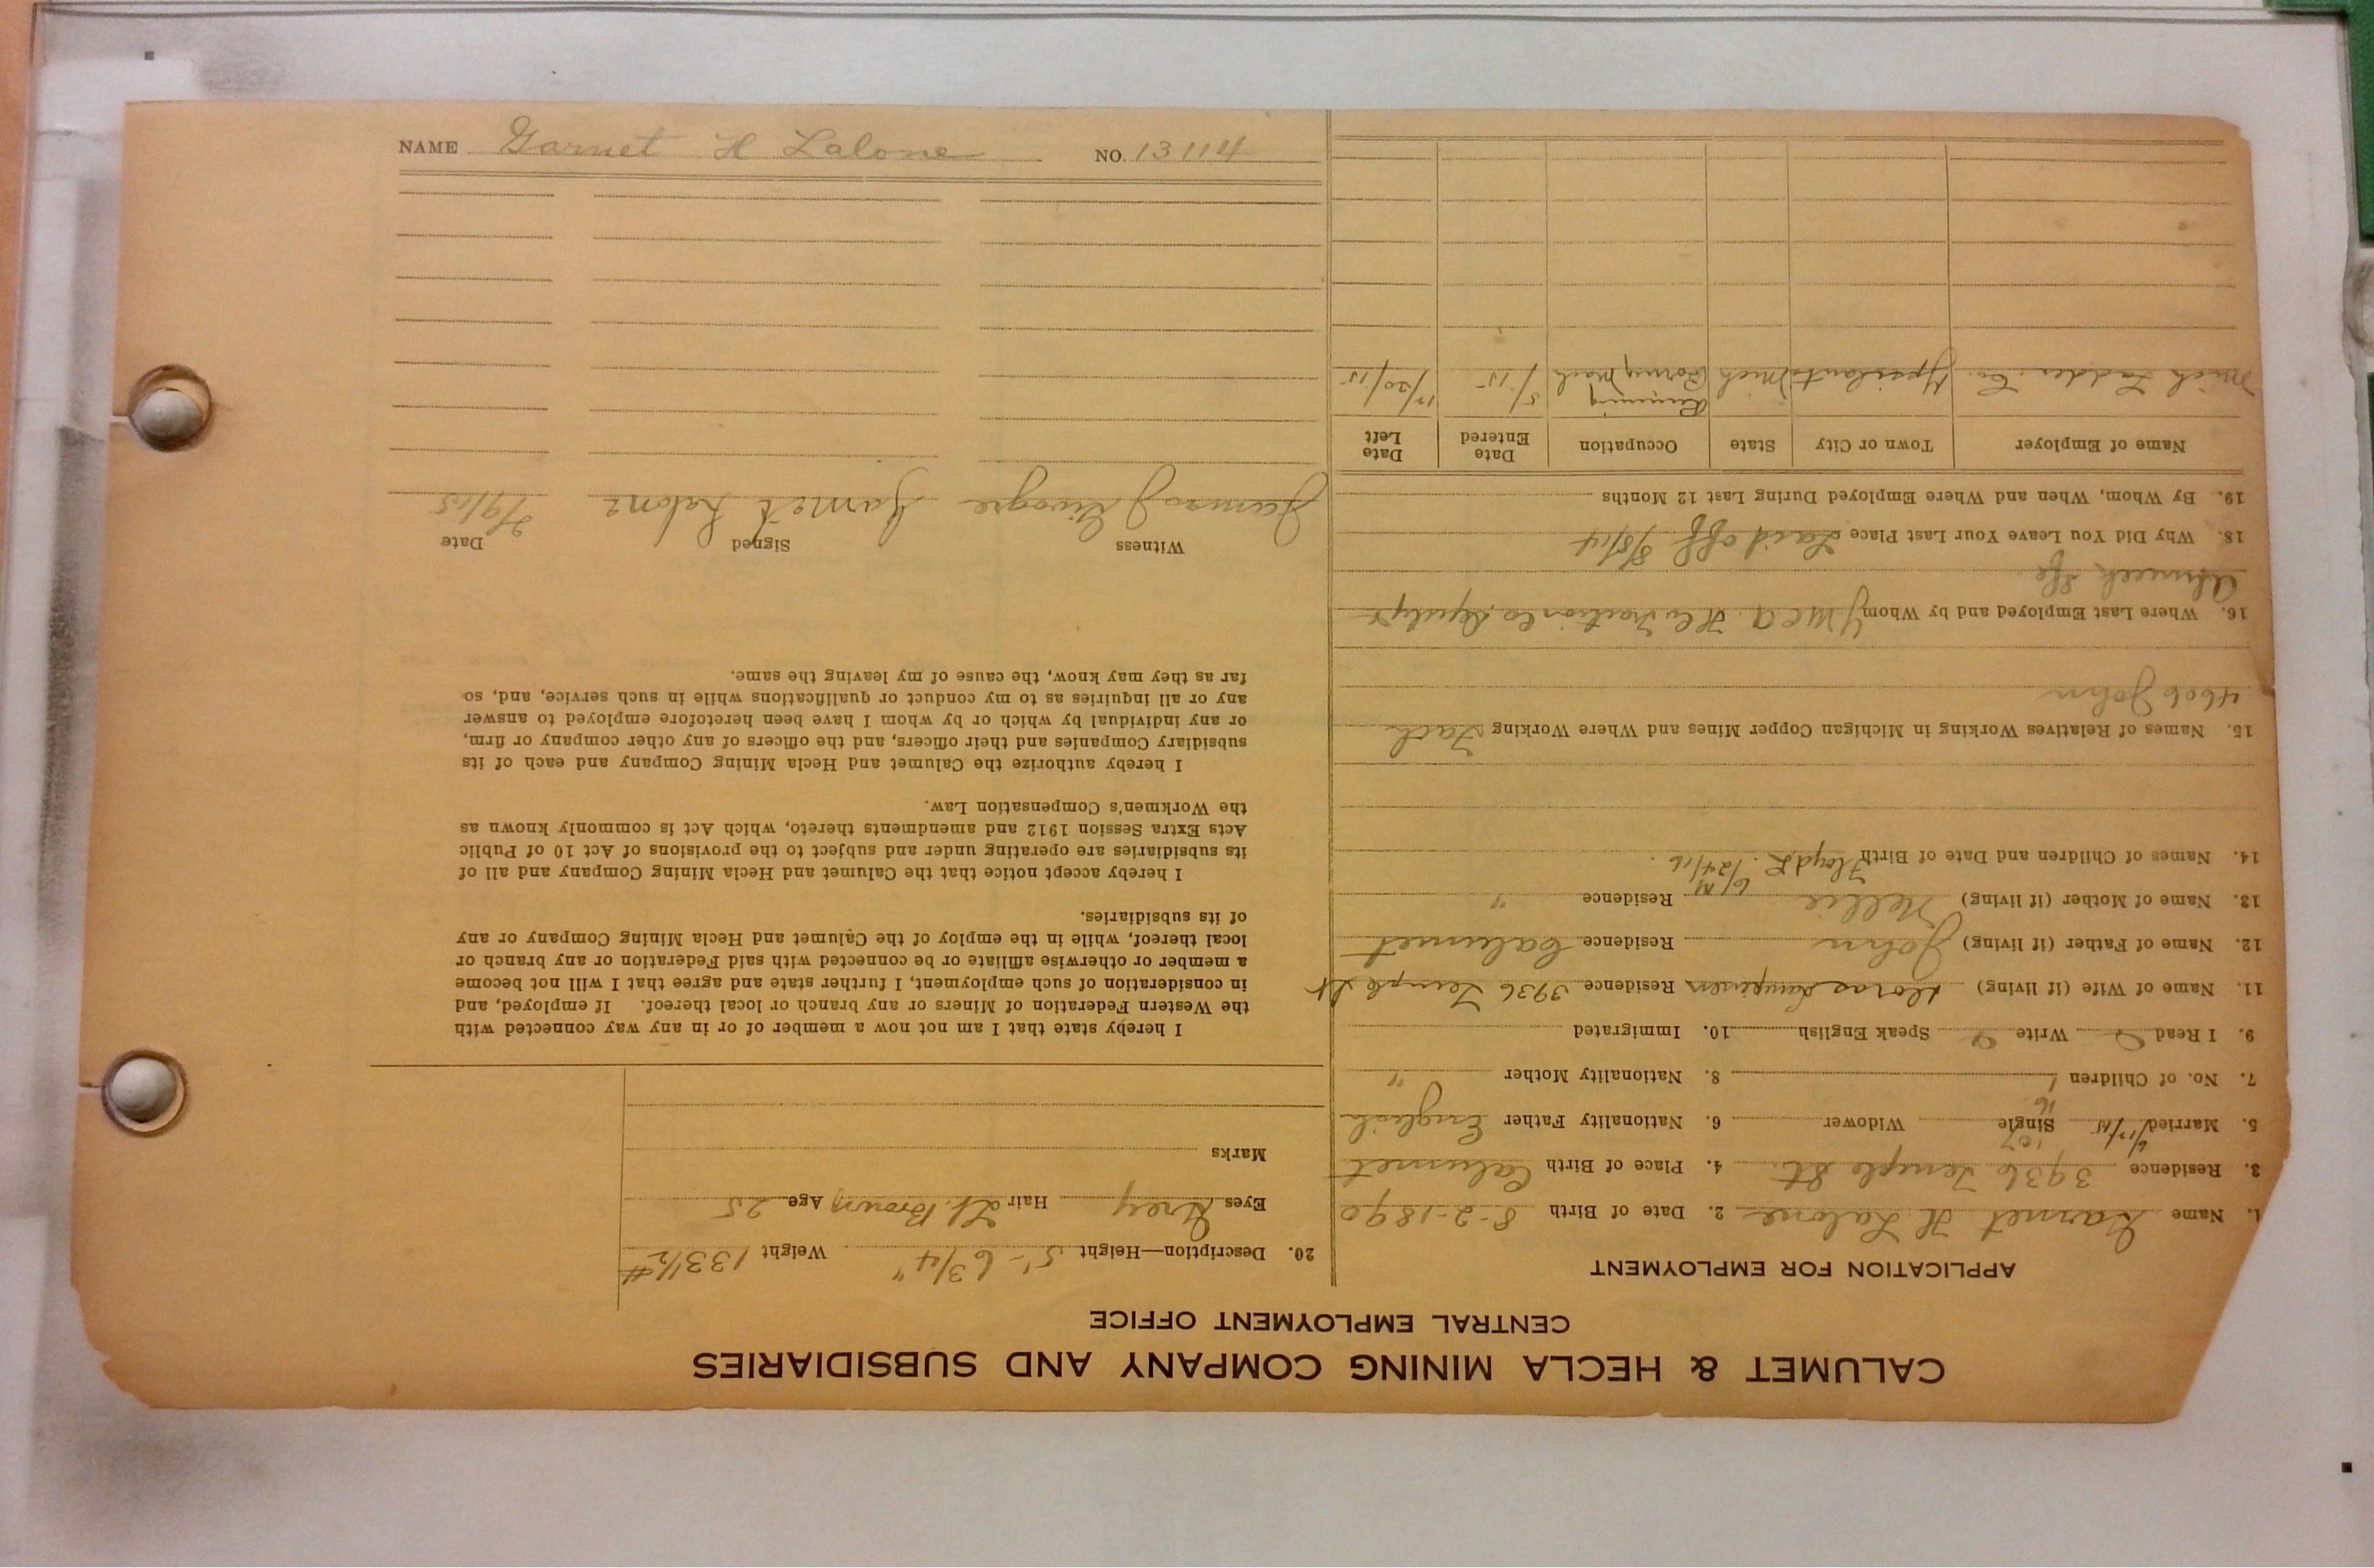 CALUMET & HECLA MINING COMPANY AND SUBSIDIARIES
CENTRAL EMPLOYMENT OFFICE
APPLICATION FOR EMPLOYMENT
1. Name Garnet H Lalone 2. Date of Birth 8-2-1890
3. Residence 3936 Temple St. 4. Place of Birth Calumet
5. Married 6/17/15 Single Widower 6. Nationality Father English
16
7. No. of Children 1 8. Nationality Mother "
9. I Read Write Speak English 10. Immigrated
11. Name of Wife (if living) Residence 3936 Temple St
12. Name of Father (if living) John Residence Calumet
13. Name of Mother (if living) Nellie Residence "
14. Names of Children and Date of Birth Floyd 6/24/16
15. Names of Relatives Working in Michigan Copper Mines and Where Working Fath
4606 John
16. Where Last Employed and by Whom YMCA
Ahmeek
18. Why Did You Leave Your Last Place Laid off 8/5/14
19. By Whom, When and Where Employed During Last 12 Months
Name of Employer Town or City State Occupation Date Entered Date Left
Mich Ladder Co. Ypsilanti Mich Running Boring Mach 5/15 12/20/15
20. Description—Height 5'-6 3/4" Weight 133 1/2 #
Eyes Grey Hair Lt. Brown Age 25
Marks
I hereby state that I am not now a member of or in any way connected with
the Western Federation of Miners or any branch or local thereof. If employed, and
in consideration of such employment, I further state and agree that I will not become
a member or otherwise affiliate or be connected with said Federation or any branch or
local thereof, while in the employ of the Calumet and Hecla Mining Company or any
of its subsidiaries.
I hereby accept notice that the Calumet and Hecla Mining Company and all of
its subsidiaries are operating under and subject to the provisions of Act 10 of Public
Acts Extra Session 1912 and amendments thereto, which Act is commonly known as
the Workmen's Compensation Law.
I hereby authorize the Calumet and Hecla Mining Company and each of its
subsidiary Companies and their officers, and the officers of any other company or firm,
or any individual by which or by whom I have been heretofore employed to answer
any or all inquiries as to my conduct or qualifications while in such service, and, so
far as they may know, the cause of my leaving the same.
Witness Signed Date
James J Garnet Lalone
NAME Garnet H Lalone NO. 13114